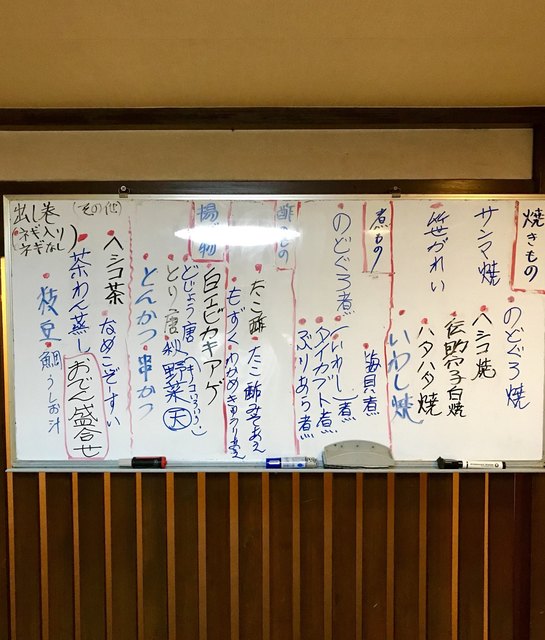 焼きもの
のどぐろ焼
サンマ焼
ヘシコ焼
伝助穴子白焼
笹がれい
ハタハタ焼
いわし焼
煮もの
梅貝煮
のどぐろ煮
いわし煮
アイカブト煮
ぶりあら煮
酢もの
たこ酢
たこ酢
もずく
わかめきゅうり
揚げ物
白エビカキアゲ
どじょう唐
とり唐
秋野菜天
とんかつ
串かつ
(その他)
ヘシコ茶
なめこぞうすい
出し巻
(ネギ入り
ネギなし)
茶わん蒸し
おでん盛合せ
枝豆
鯛うしお汁